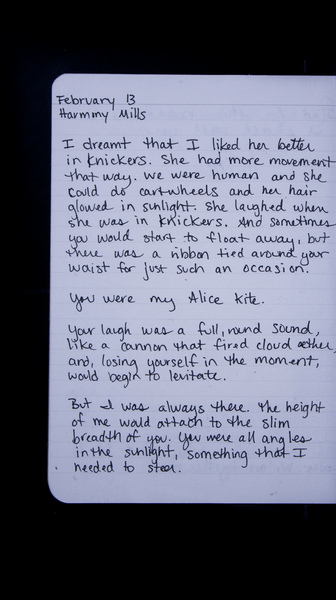 February 13
Harmony Mills
I dreamt that I liked her better
in knickers. She had more movement
that way. We were human and she
could do cartwheels and her hair
glowed in sunlight. She laughed when
she was in knickers. And sometimes
you would start to float away, but
there was a ribbon tied around your
waist for just such an occasion.
You were my Alice kite.
Your laugh was a full, round sound,
like a cannon that fired cloud aether,
and, losing yourself in the moment,
would begin to levitate.
But I was always there. The height
of me would attach to the slim
breadth of you. You were all angles
in the sunlight, something that I
needed to steer.